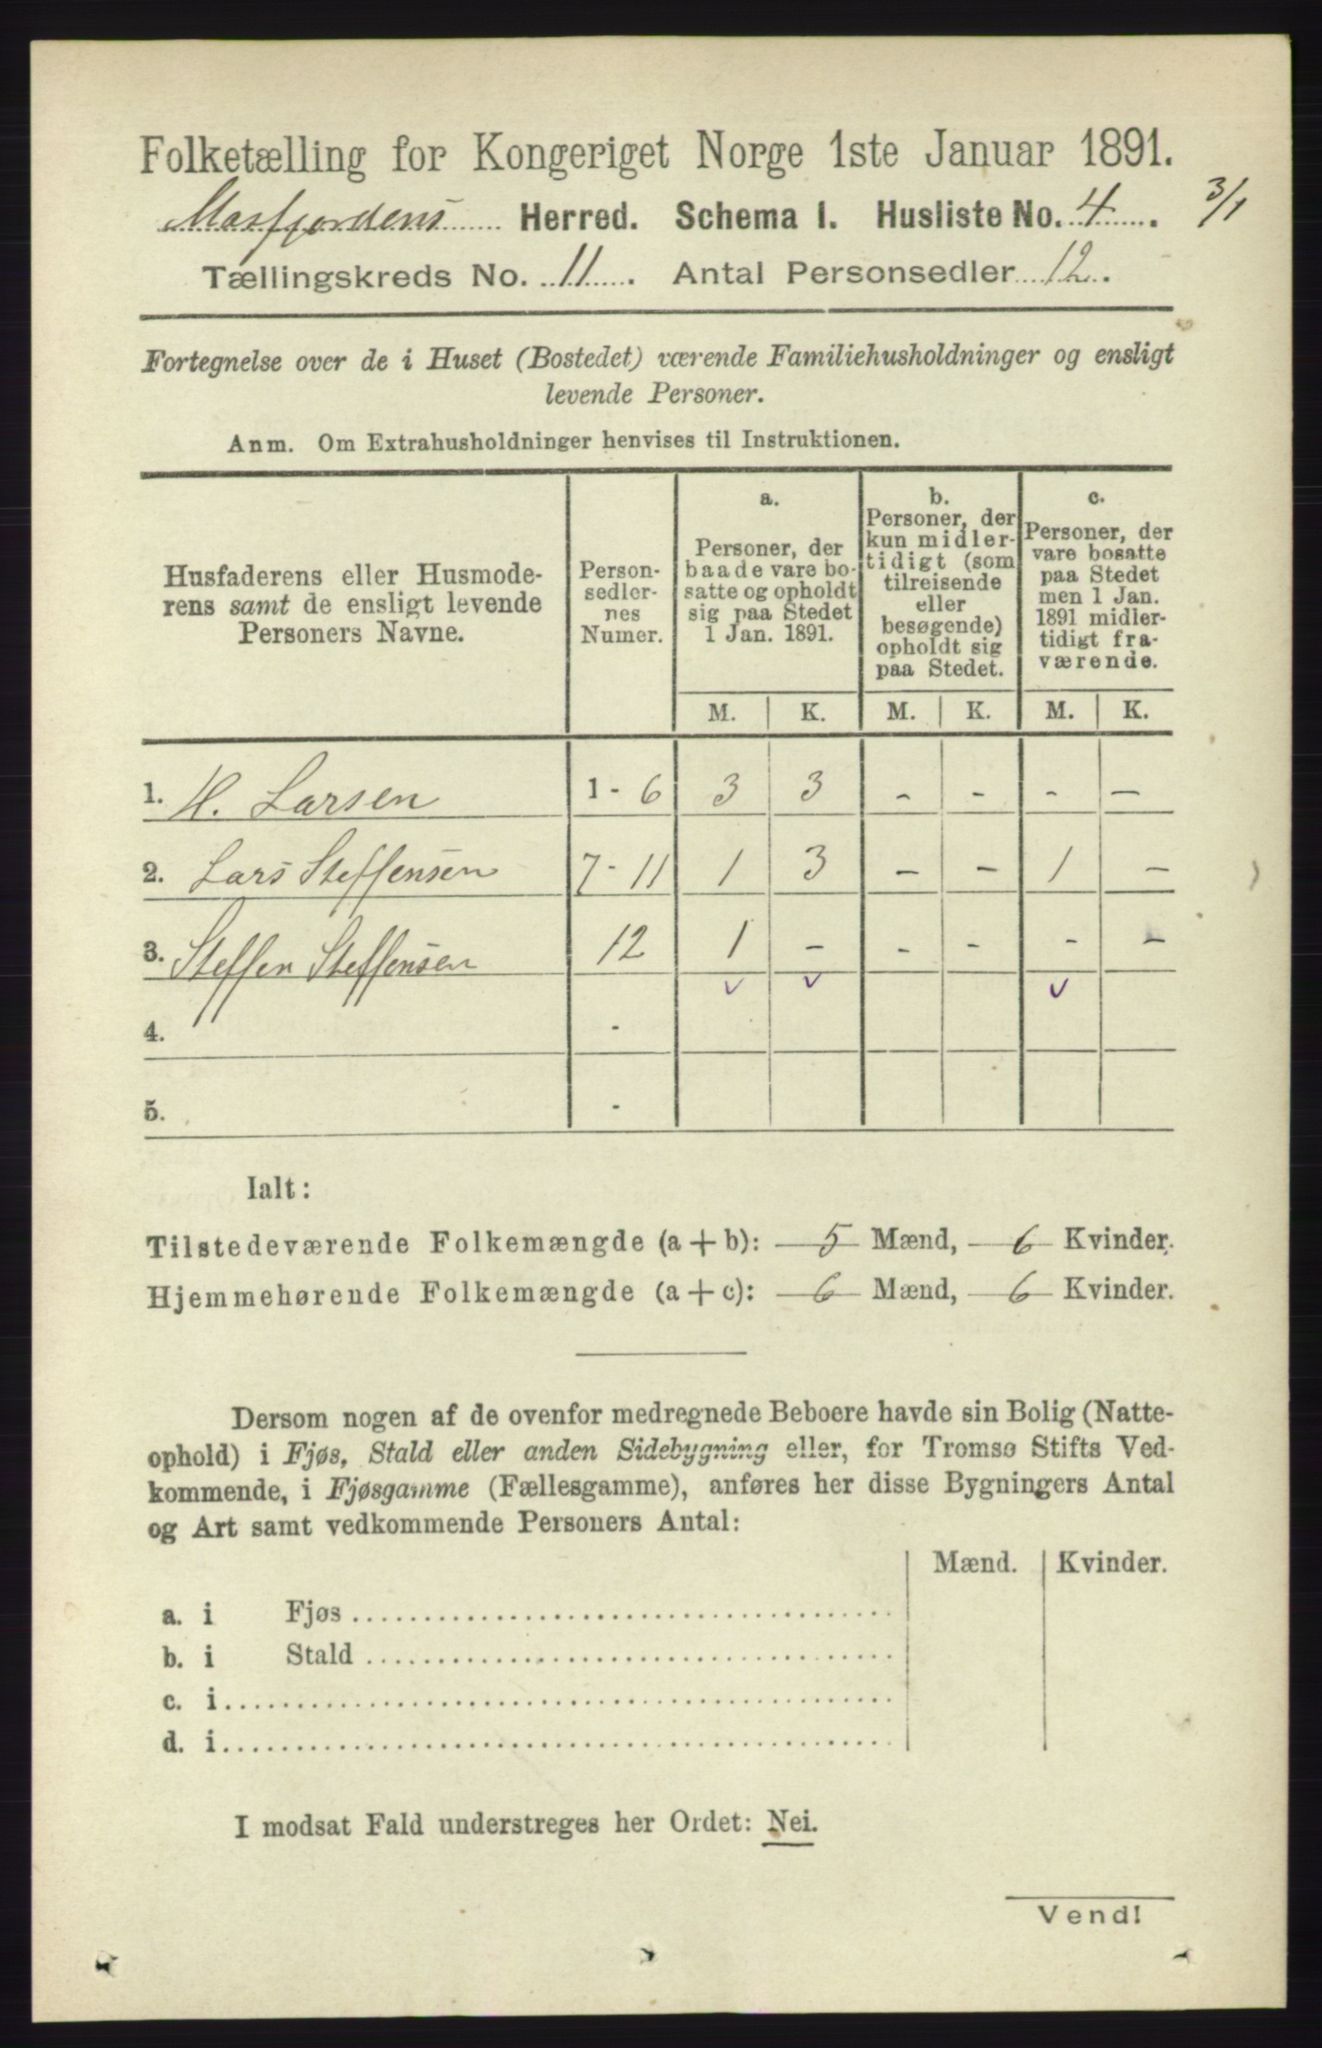 Folketælling for Kongeriget Norge 1ste Januar 1891.
Masfjordens Herred. Schema I. Husliste No. 4. 3/1
Tællingskreds No. 11. Antal Personsedler 12.
Fortegnelse over de i Huset (Bostedet) værende Familiehusholdninger og ensligt
levende Personer.
Anm. Om Extrahusholdninger henvises til Instruktionen.
Husfaderens eller Husmode-
rens samt de ensligt levende
Personers Navne.
Person-
sedler-
nes
Numer.
a.
Personer, der
baade vare bo-
satte og opholdt
sig paa Stedet
1 Jan. 1891.
b.
Personer, der
kun midler-
tidigt (som
tilreisende
eller
besøgende)
opholdt sig
paa Stedet.
c.
Personer, der
vare bosatte
paa Stedet
men 1 Jan.
1891 midler-
tidigt fra-
værende.
M. K. M. K. M. K.
1. H. Larsen 1 - 6 3 3 - - - -
2. Lars Steffensen 7 - 11 1 3 - - 1 -
3. Steffen Steffensen 12 1 - - - - -
v v v
4. -
5. -
Ialt:
Tilstedeværende Folkemængde (a + b): 5 Mænd, 6 Kvinder.
Hjemmehørende Folkemængde (a + c): 6 Mænd, 6 Kvinder.
Dersom nogen af de ovenfor medregnede Beboere havde sin Bolig (Natte-
ophold) i Fjøs, Stald eller anden Sidebygning eller, for Tromsø Stifts Ved-
kommende, i Fjøsgamme (Fællesgamme), anføres her disse Bygningers Antal
og Art samt vedkommende Personers Antal:
Mænd. Kvinder.
a. i Fjøs
b. i Stald
c. i
d. i
I modsat Fald understreges her Ordet: Nei.
Vend!